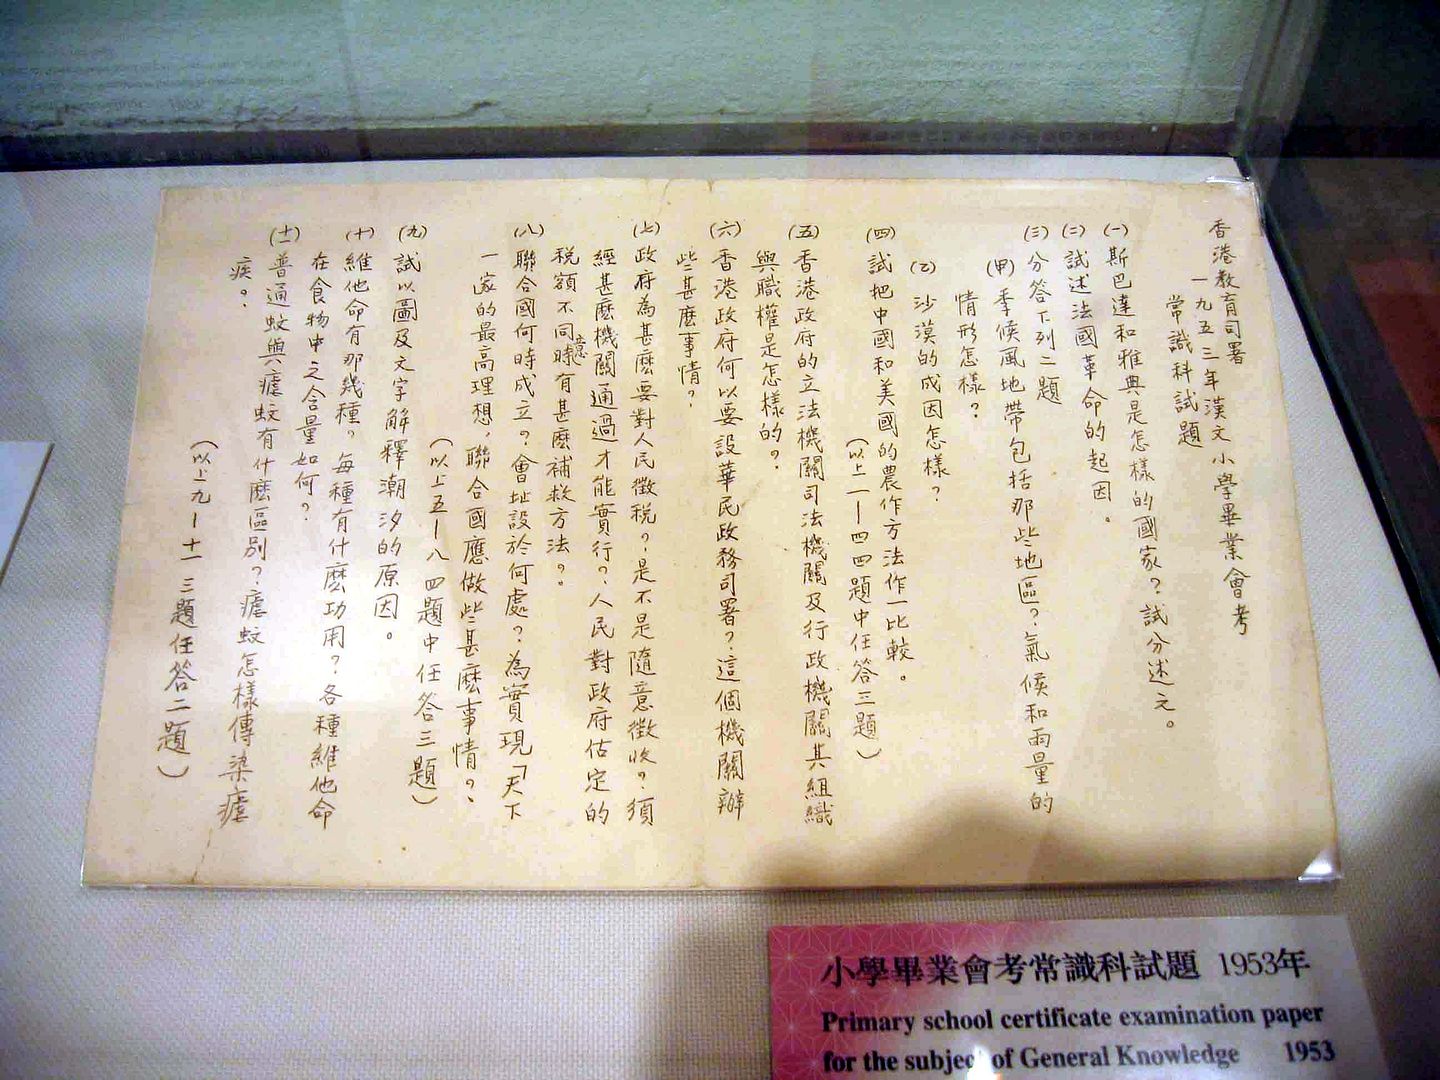 香港教育司署
一九五三年漢文小學畢業會考
常識科試題
(一)斯巴達和雅典是怎樣的國家？試分述之。
(二)試述法國革命的起因。
(三)分答下列二題
(甲)季候風地帶包括那些地區？氣候和雨量的
情形怎樣？
(乙)沙漠的成因怎樣？
(四)試把中國和美國的農作方法作一比較。
(以上一—四四題中任答三題)
(五)香港政府的立法機關司法機關及行政機關其組織
與職權是怎樣的？
(六)香港政府何以要設華民政務司署？這個機關辦
些甚麽事情？
(七)政府為甚麽要對人民徵稅？是不是隨意徵收？須
經甚麽機關通過才能實行？人民對政府估定的
稅額不同意時有甚麽補救方法？
(八)聯合國何時成立？會址設於何處？為實現「天下
一家的最高理想，聯合國應做些甚麽事情？
(以上五—八四題中任答三題)
(九)試以圖及文字解釋潮汐的原因。
(十)維他命有那幾種？每種有什麽功用？各種維他命
在食物中之含量如何？
(十一)普通蚊與瘧蚊有什麽區別？瘧蚊怎樣傳染瘧
疾？
(以上九—十一三題任答二題)
小學畢業會考常識科試題 1953年
Primary school certificate examination paper
for the subject of General Knowledge 1953